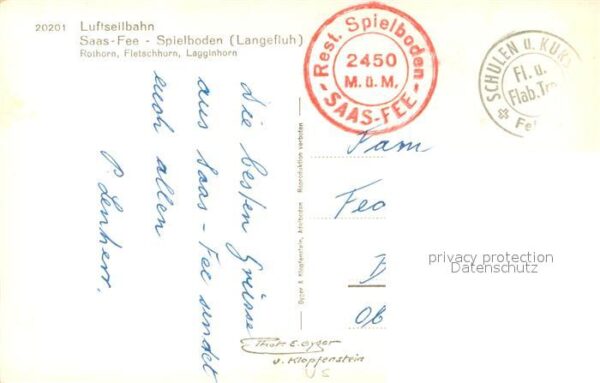 20201 Luftseilbahn
Saas-Fee - Spielboden (Langefluh)
Rothorn, Fletschhorn, Lagginhorn
Rest. Spielboden
2450
M.ü.M.
-SAAS-FEE-
SCHULEN u. KURS
Fl. u.
Flab.Tr
Fe
Die besten Grüsse
aus Saas-Fee sendet
euch allen
P. Lenherr.
Gyger & Klopfenstein, Adelboden Reproduktion verboten
Fam
Feo
Ob
privacy protection
Datenschutz
Phot: E. Gyger
u. Klopfenstein